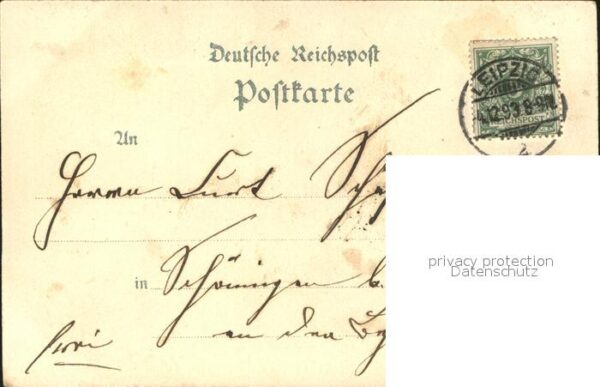 Deutsche Reichspost
Postkarte
LEIPZIG
4.12.93.8-9N.
REICHSPOST
2
An
Herrn Curt Sch
in Schöningen b.
an der
frei
privacy protection
Datenschutz